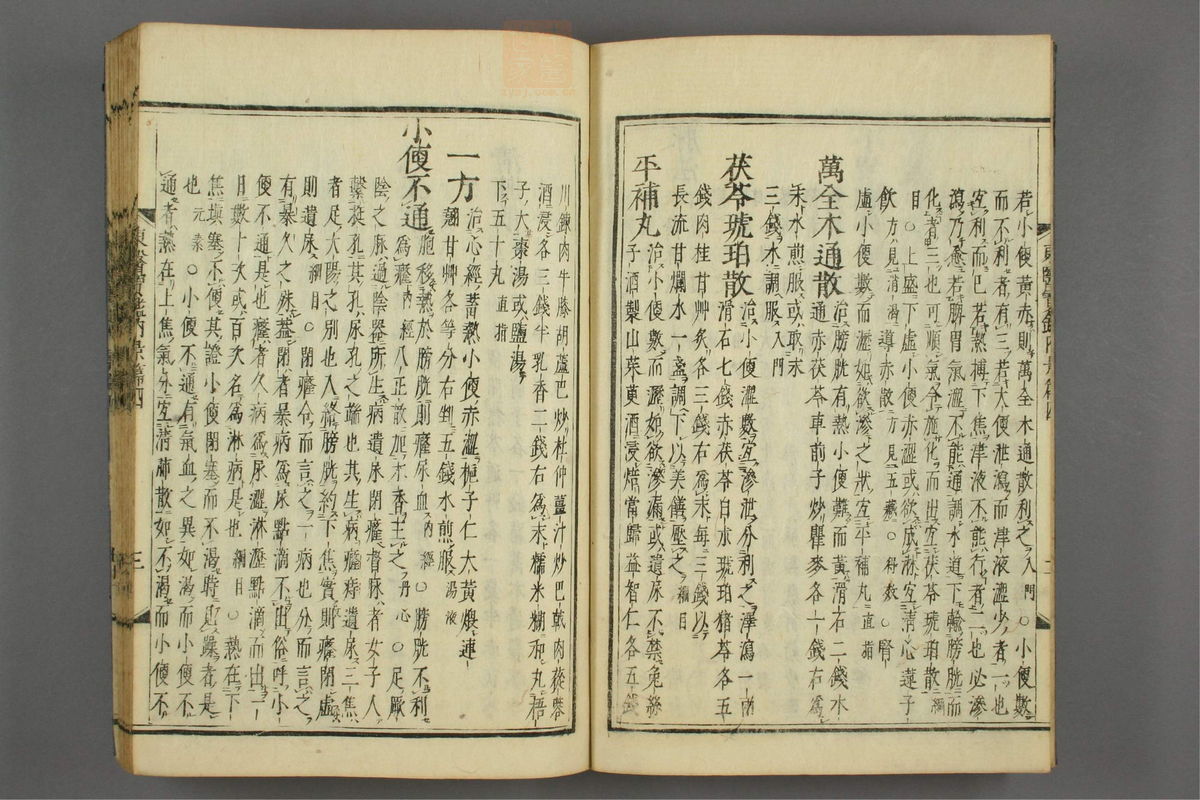 若小便黃赤則萬全木通散利之入門○小便數
而不利者有三若大便泄瀉而津液澁少者一也
宜利而已若熱搏下焦津液不能行者二也必滲
瀉乃愈若脾胃氣澁不能通調水道下輸膀胱而
化者三也可順氣令施化而出宜茯苓琥珀散綱
目○上盛下虛小便赤澀或欲成淋宜淸心蓮子
飮方見消渴導赤散方見五藏○科數○腎
虛小便數而瀝如欲滲之狀宜平補丸直指
萬全木通散治膀胱有熱小便難而黃滑石二錢木
通赤茯苓車前子炒瞿麥各一錢右爲
末水煎服或取末
三錢水調服入門
茯苓琥珀散治小便澀數宜滲泄分利之澤瀉一兩
滑石七錢赤茯苓白朮琥珀猪苓各五
錢肉桂甘艸炙各三錢右爲末每三錢以
長流甘爛水一盞調下以美饍壓之綱目
平補丸治小便數而瀝如欲滲漏或遺尿不禁兔絲
子酒製山茱萸酒浸焙當歸益智仁各五錢
川鍊肉牛膝胡蘆巴炒杜仲薑汁炒巴戟肉蓯蓉
酒浸各三錢半乳香二錢右爲末糯米糊和丸梧
子大棗湯或鹽湯
下五十丸直指
一方治心經蓄熱小便赤澁梔子仁大黃煨連
翹甘艸各等分右剉五錢水煎服湯液
小便不通胞移熱於膀胱則癃尿血內經○膀胱不利
爲癃內經八正散加木香主之丹心○足厥
陰之脉過陰器所生病遺尿閉癃督脉者女子入
繫廷孔其孔尿孔之端也其生病癃痔遺尿三焦
者足太陽之別也入絡膀胱約下焦實則癃閉虛
則遺尿綱目○閉癃合而言之一病也分而言之
有暴久之殊蓋閉者暴病爲尿點滴不出俗呼小
便不通是也癃者久病爲尿澀淋瀝點滴而出一
日數十次或百次名爲淋病是也綱目○熱在下
焦塡塞不便其證小便閉塞而不渴時見躁者是
也元素○小便不通有氣血之異如渴而小便不
通者熱在上焦氣分宜淸肺散如不渴而小便不
東醫寶鑑內景篇四
三